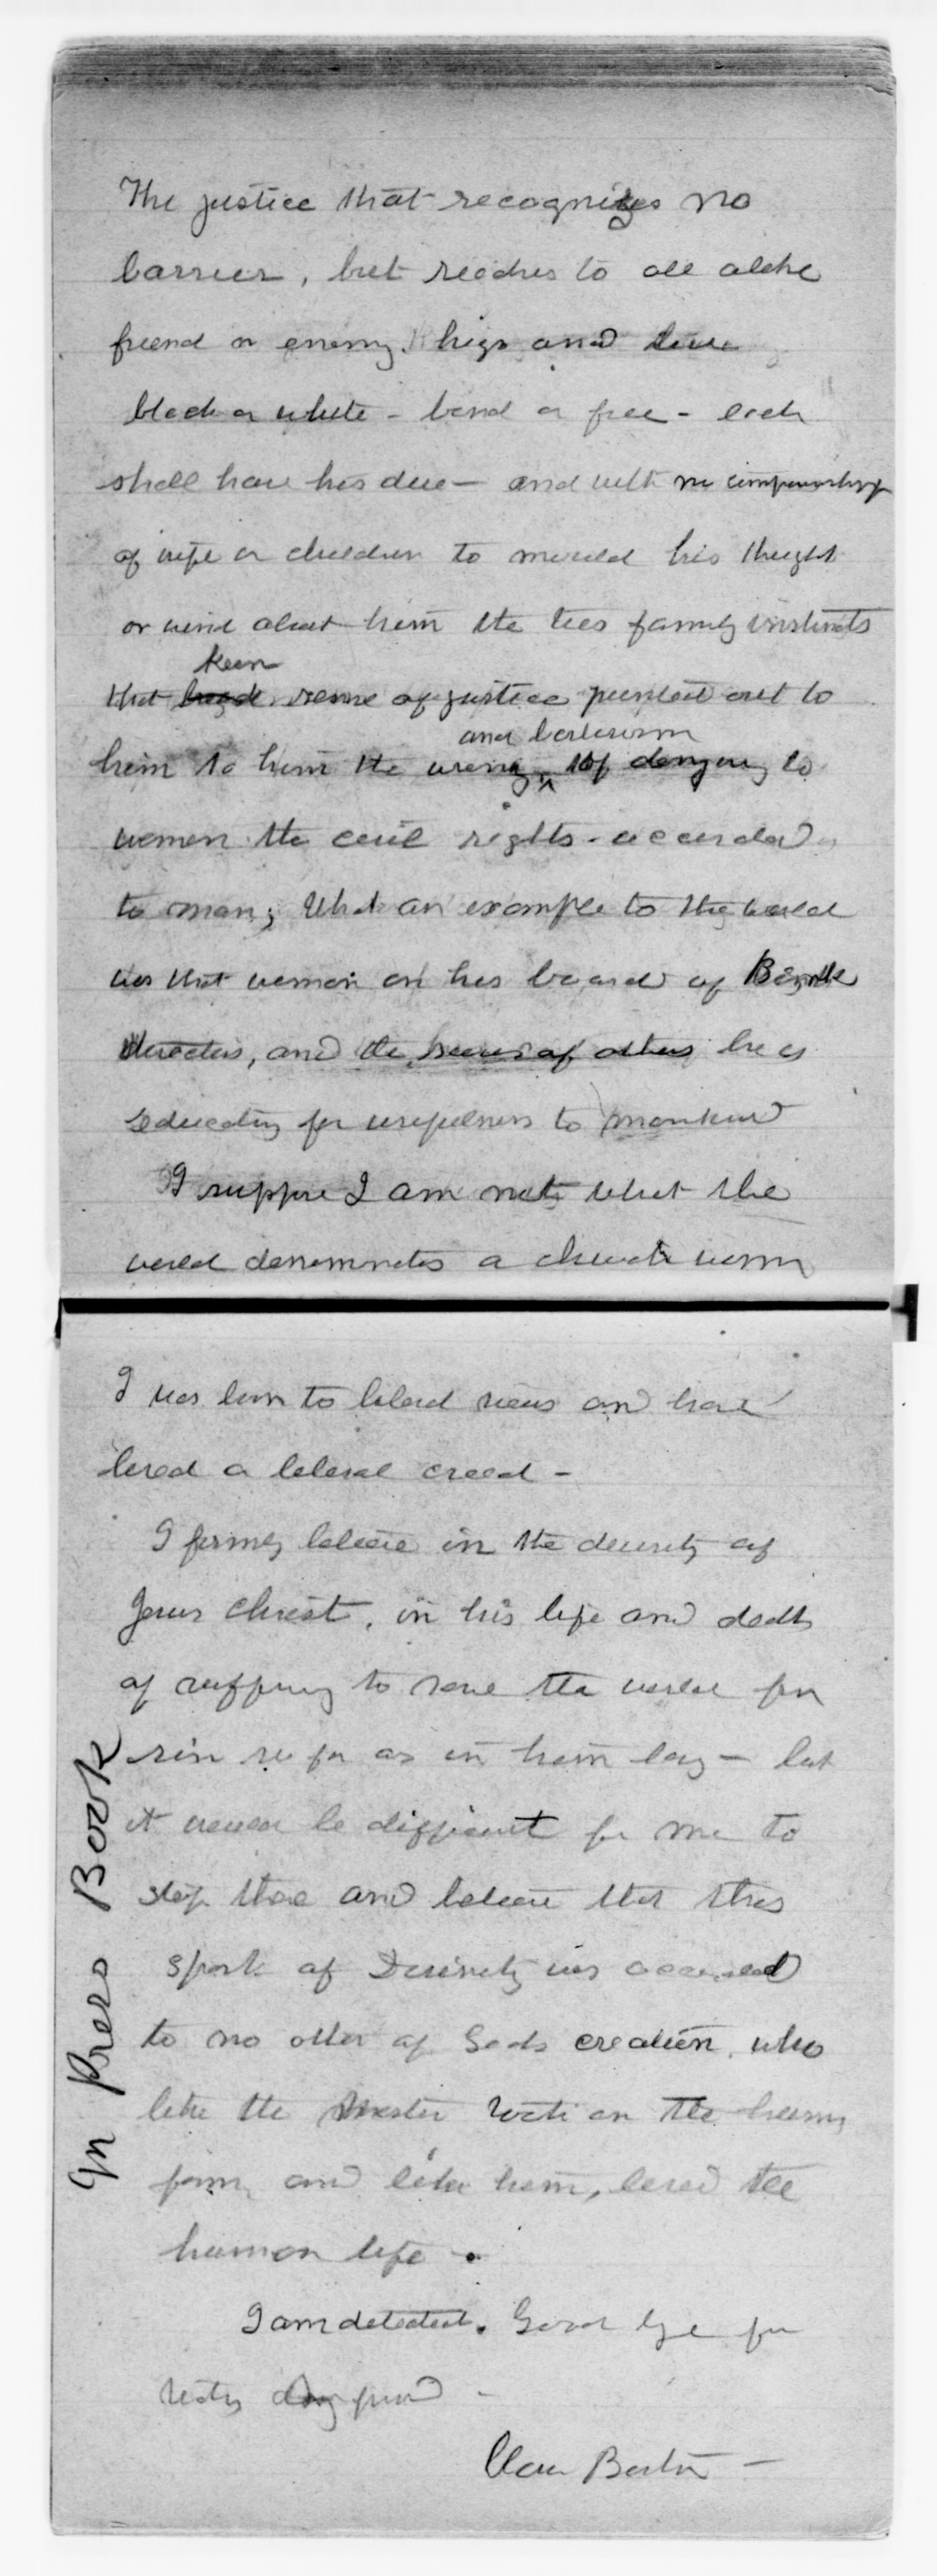 The justice that recognizes no
barrier, but reaches to all alike
friend or enemy, high and low
black or white - bond or free - each
shall have his due — and with no companionship
of wife or children to mould his thought
or wind about him the ties family instincts
keen
that sense of justice pointed out to
and barbarism
him to him the wrong of denying to
women the civil rights - accorded
to man; What an example to the world
was that woman on his board of Bank
directors, and the scores of others he is
educating for usefulness to mankind
I suppose I am not what the
world denominates a church woman
I was born to liberal views and have
lived a liberal creed -
I firmly believe in the divinity of
Jesus Christ, in his life and death
of suffering to save the world from
sin so far as in him lay — but
it would be difficult for me to
stop there and believe that this
spark of Divinity was accorded
to no other of Gods creation, who
like the Master took on the human
form, and like him, lived the
human life.
I am detected. Good bye for
Clara Barton —
In Press Book